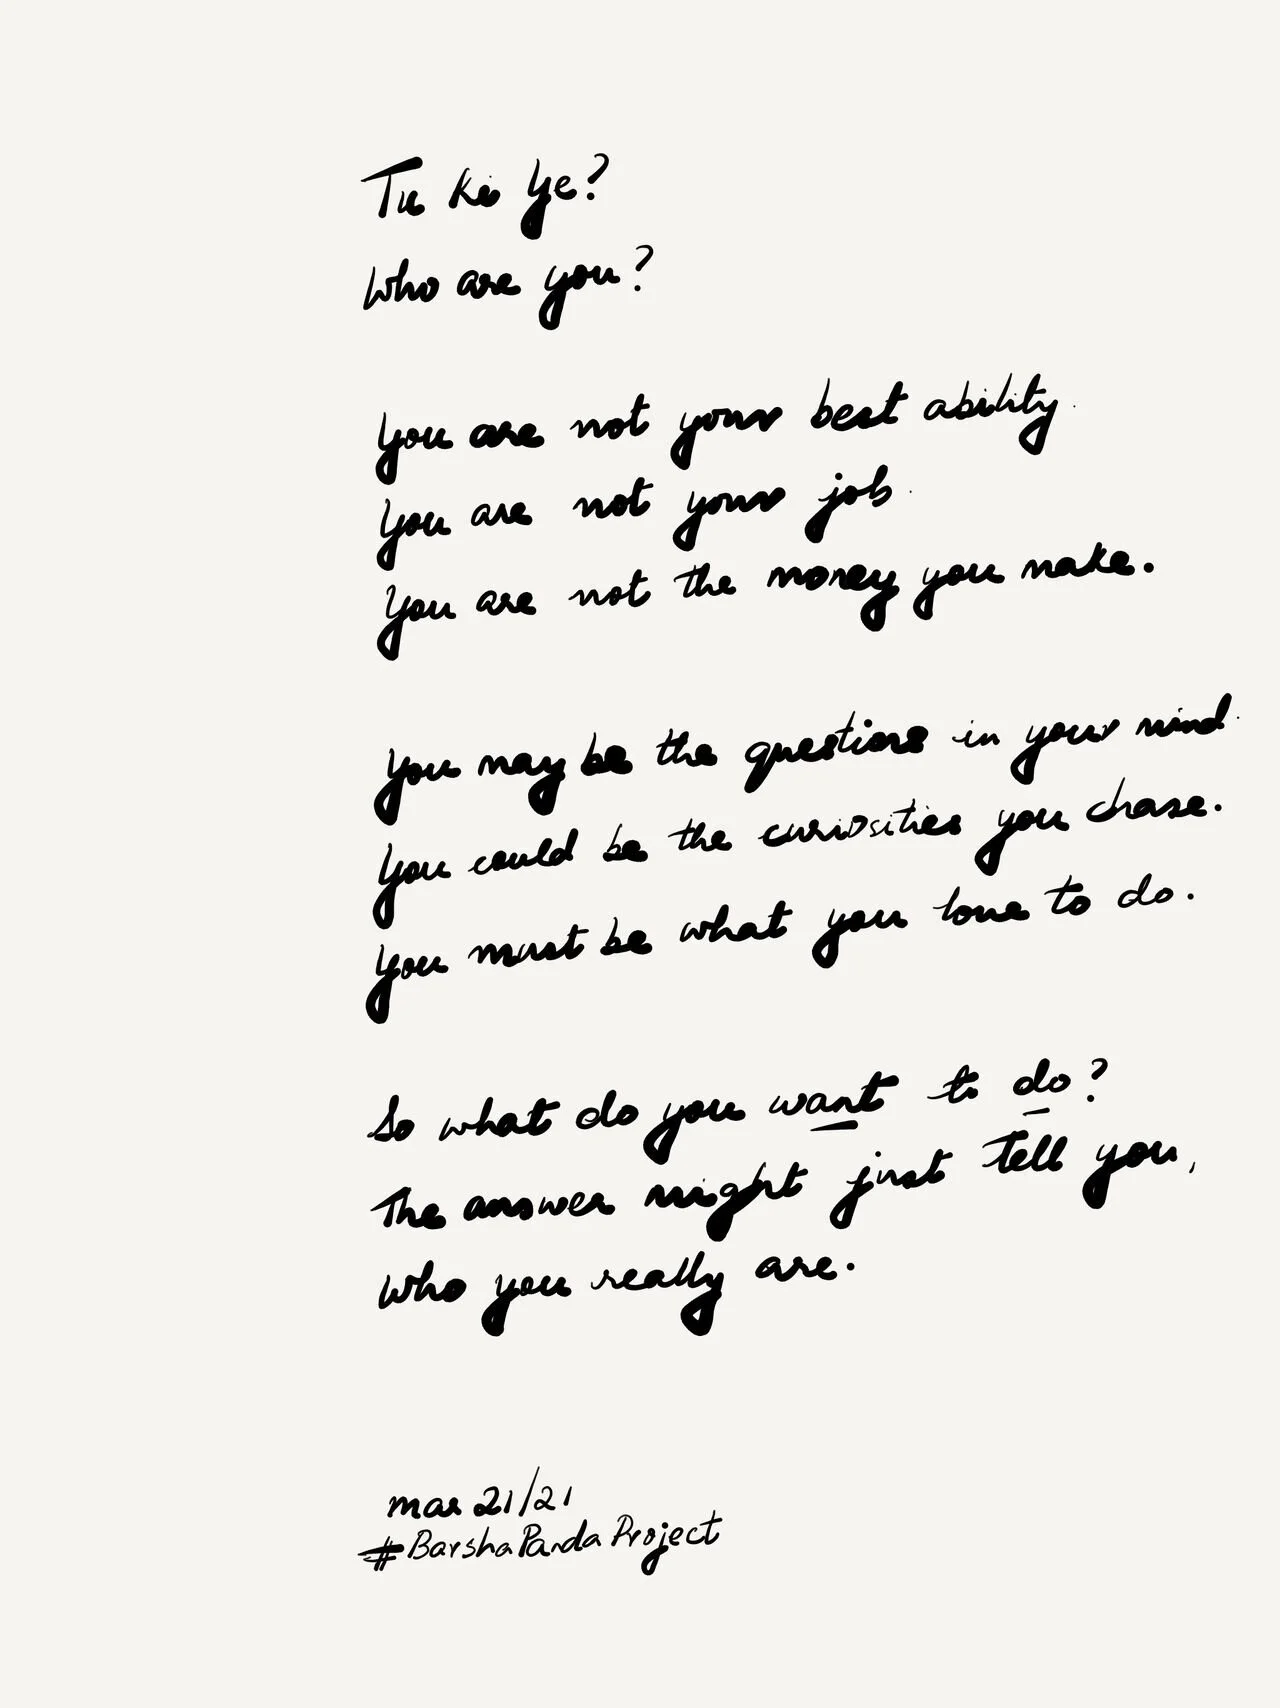 Tu ki ye?
Who are you?
You are not your best ability.
You are not your job.
You are not the money you make.
You may be the questions in your mind.
You could be the curiosities you chase.
You must be what you love to do.
So what do you want to do?
The answer might just tell you,
who you really are.
mar 21/21
#BarshaPandaProject